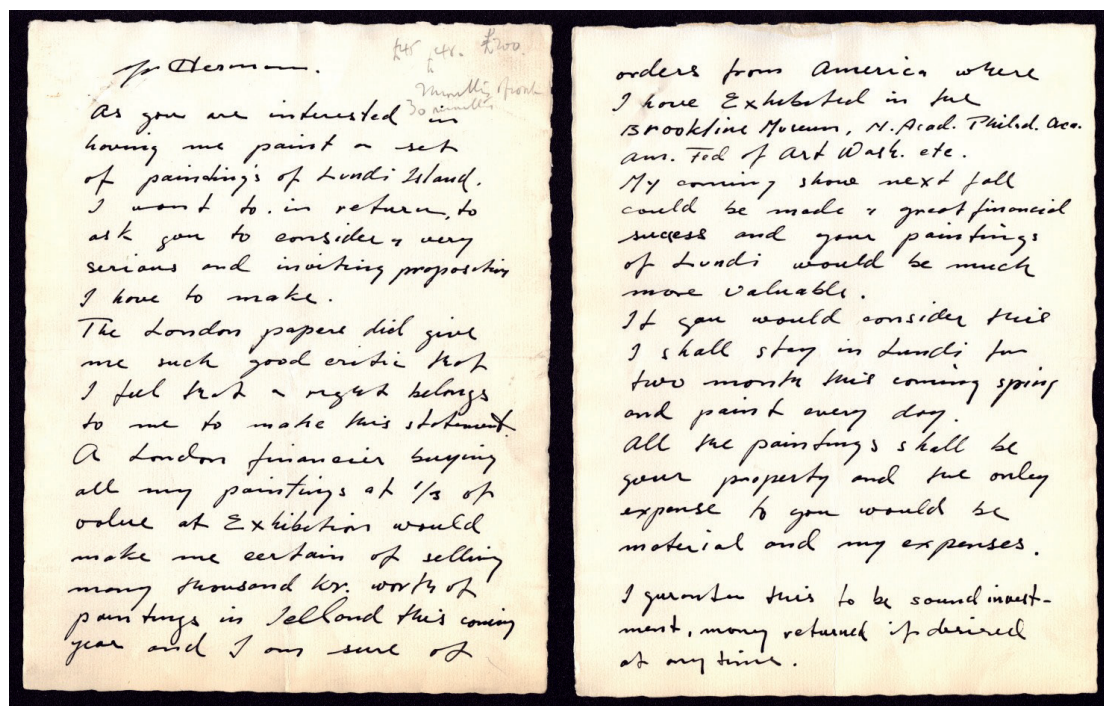 Herman.
£45 £45. £200.
30 months
As you are interested in
having me paint a set
of paindings of Lundi Island.
I want to. in return, to
ask you to consider a very
serious and inviting proposition
I have to make.
The London papers did give
me such good critic that
I feel that a right belongs
to me to make this statement.
A London financier buying
all my paintings at 1/3 of
value at Exhibition would
make me certain of selling
many thousand kr. worth of
paintings in Iclland this coming
year and I am sure of
orders from America where
I have Exhibited in the
Brookline Museum, N. Acad. Philad. Aca.
Am. Fed of Art Wash. etc.
My coming show next fall
could be made a great financial
sucess and your paintings
of Lundi would be much
more valuable.
If you would consider this
I shall stay in Lundi for
two month this coming sping
and paint every day.
All the paintings shall be
your property and the only
expense to you would be
material and my expenses.
I gurantee this to be sound invest-
ment, money returned if desired
at any time.